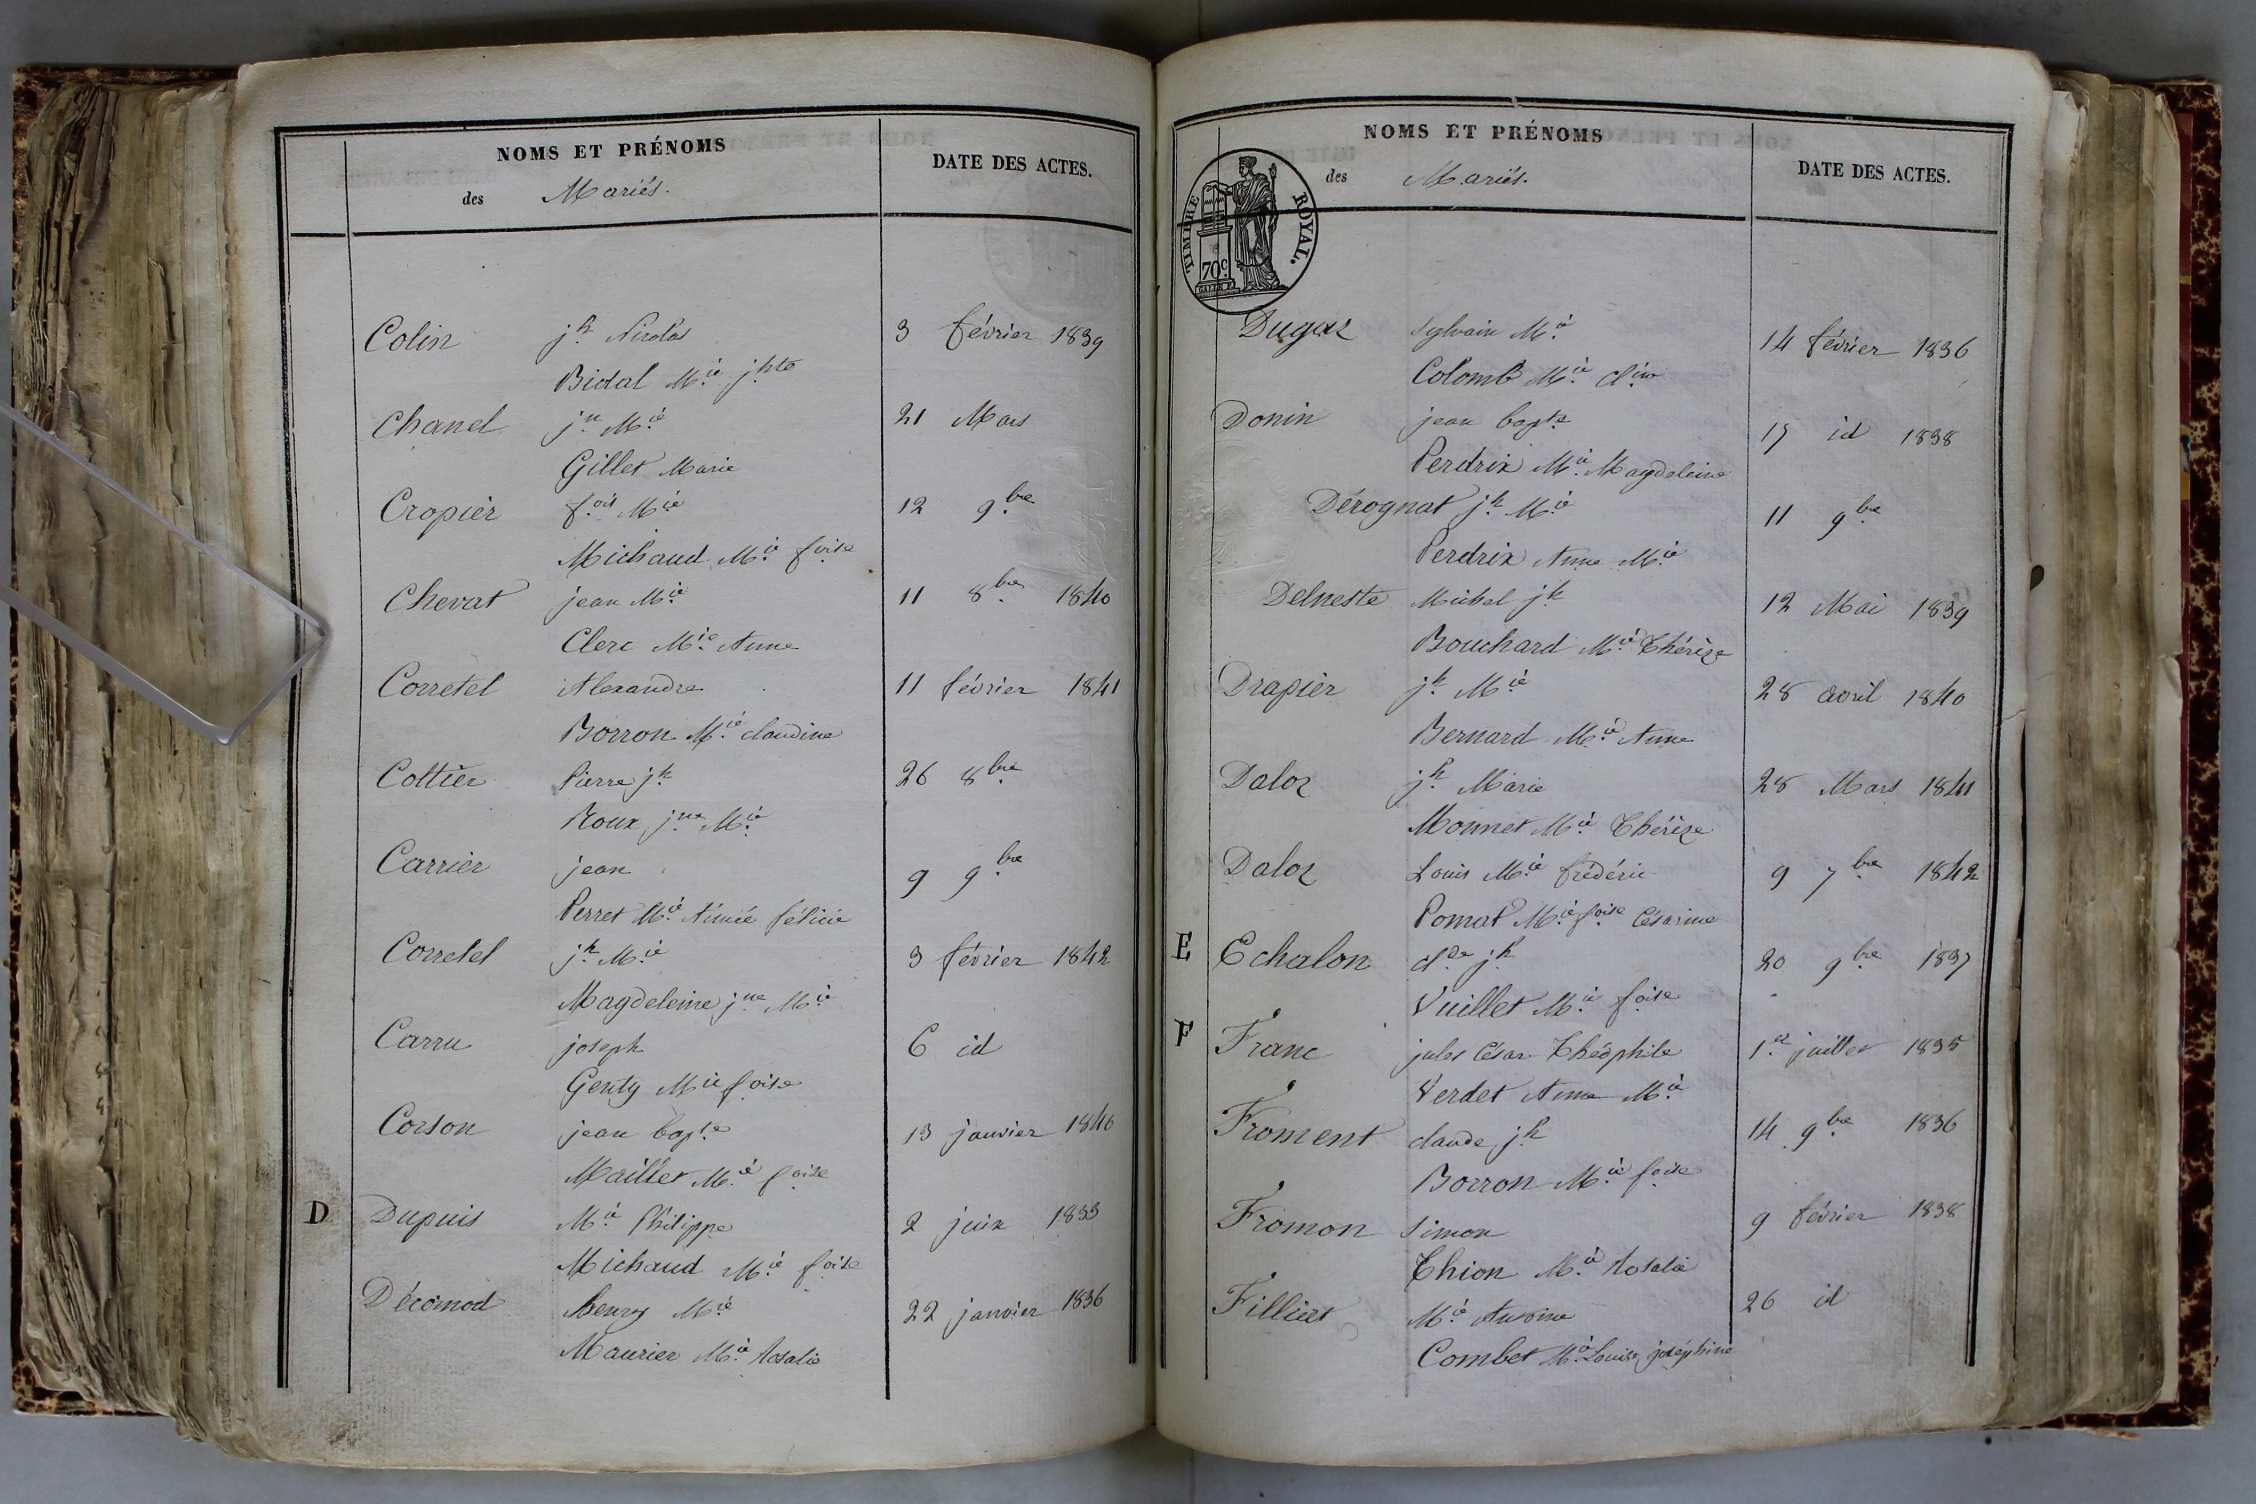 NOMS ET PRÉNOMS
des Mariés.
DATE DES ACTES.
Colin jh Nicolas 3 février 1839
Bidal Mie jhte
Chanel jn Mie 21 Mars
Gillet Marie
Cropier fois Mie 12 9bre
Michaud Mie foise
Chevat jean Mie 11 8bre 1840
Clerc Mie Anne
Corretel Alexandre 11 février 1841
Borron Mie claudine
Cottier Pierre jh 26 8bre
Roux jne Mie
Carrier jean 9 9bre
Perret Mie Aimée félicie
Corretel jh Mie 3 février 1842
Magdeleine jne Mie
Carru joseph 6 id
Genty Mie foise
Corson jean bapte 13 janvier 1846
Maillet Mie foise
D Dupuis Mie Philippe 2 juin 1833
Michaud Mie foise
Décomod henry Mie 22 janvier 1836
Maurier Mie Rosalie
NOMS ET PRÉNOMS
des Mariés.
DATE DES ACTES.
TIMBRE ROYAL.
70c
Dugas Sylvain Mie 14 février 1836
Colomb Mie
Donin jean bapte 17 id 1838
Perdrix Mie Magdeleine
Dérognat jh Mie 11 9bre
Perdrix Anne Mie
Delneste Michel jh 12 Mai 1839
Bouchard Mie Thérèze
Drapier jh Mie 28 avril 1840
Bernard Mie Anne
Daloz jh Marie 28 Mars 1841
Monnet Mie Thérèze
Daloz Louis Mie frédéric 9 7bre 1842
Pomat Mie foise Césarine
E Echalon cl.de jh 20 9bre 1837
Vuillet Mie foise
F Franc jules César Théophile 1er juillet 1835
Verdet Anne Mie
Froment claude jh 14 9bre 1836
Borron Mie foise
Fromon Simon 9 février 1838
Thion Mie Rosalie
Filliert Mie Antoine 26 id
Combet Mie Louise joséphine